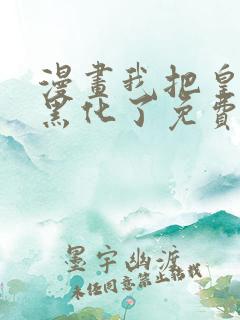 漫畫我把皇
黑化了免費
墨宇幽渡
未经同意禁止转载